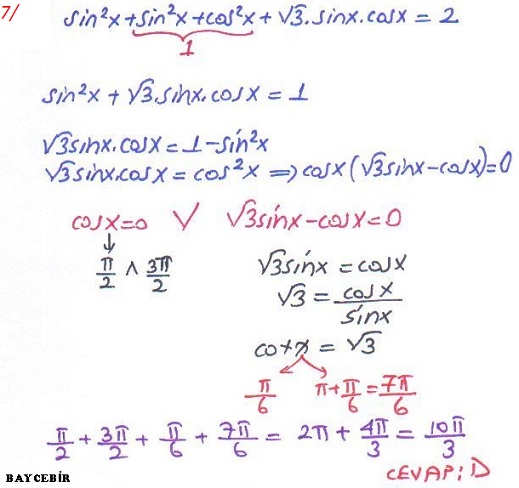 7/
sin²x + sin²x + cos²x + √3.sinx.cosx = 2
1
sin²x + √3.sinx.cosx = 1
√3sinx.cosx = 1 - sin²x
√3sinx.cosx = cos²x ⇒ cosx(√3sinx-cosx)=0
cosx=0 ∨ √3sinx-cosx=0
↓
π/2 ∧ 3π/2
√3sinx = cosx
√3 = cosx/sinx
cotx = √3
π/6 π+π/6 = 7π/6
π/2 + 3π/2 + π/6 + 7π/6 = 2π + 4π/3 = 10π/3
CEVAP: D
BAYCEBİR